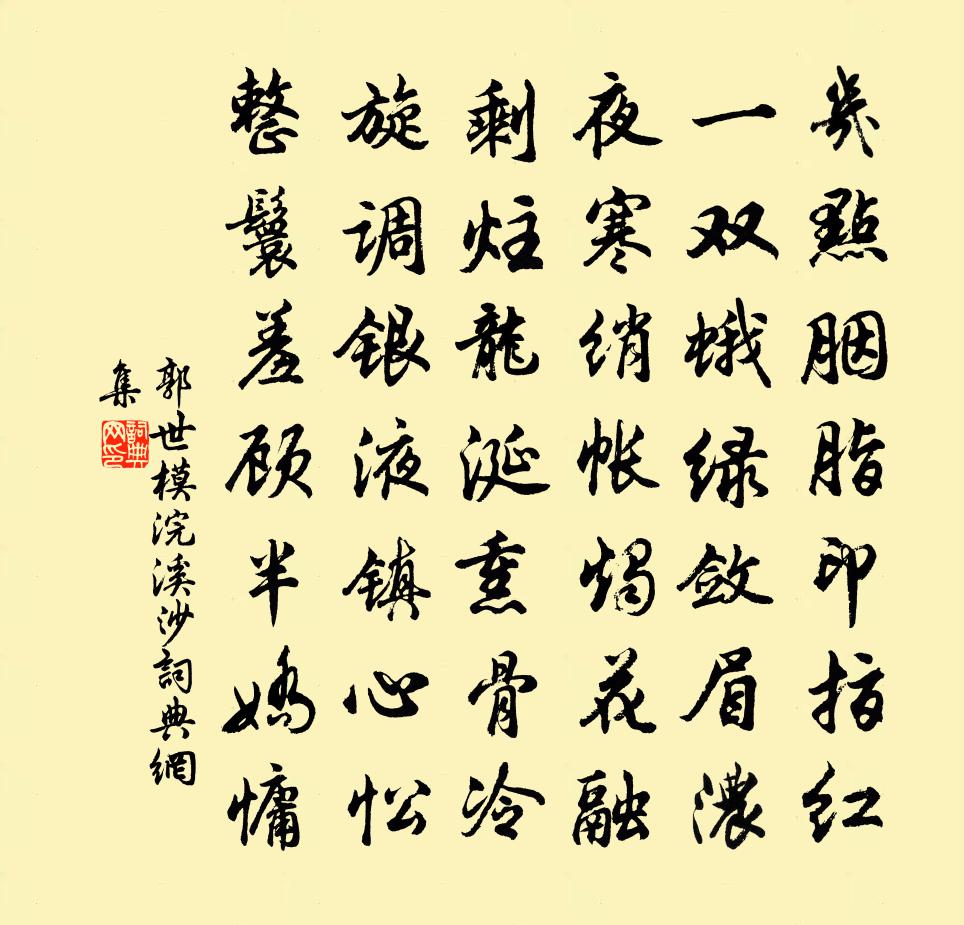 幾點胭脂印指红
一双蛾绿敛眉濃
夜寒绡帐燭花融
剩炷龍涎熏骨冷
旋调银液镇心忪
整鬟羞顾半嬌慵
郭世模浣溪沙詞典網
集
詞典
网印